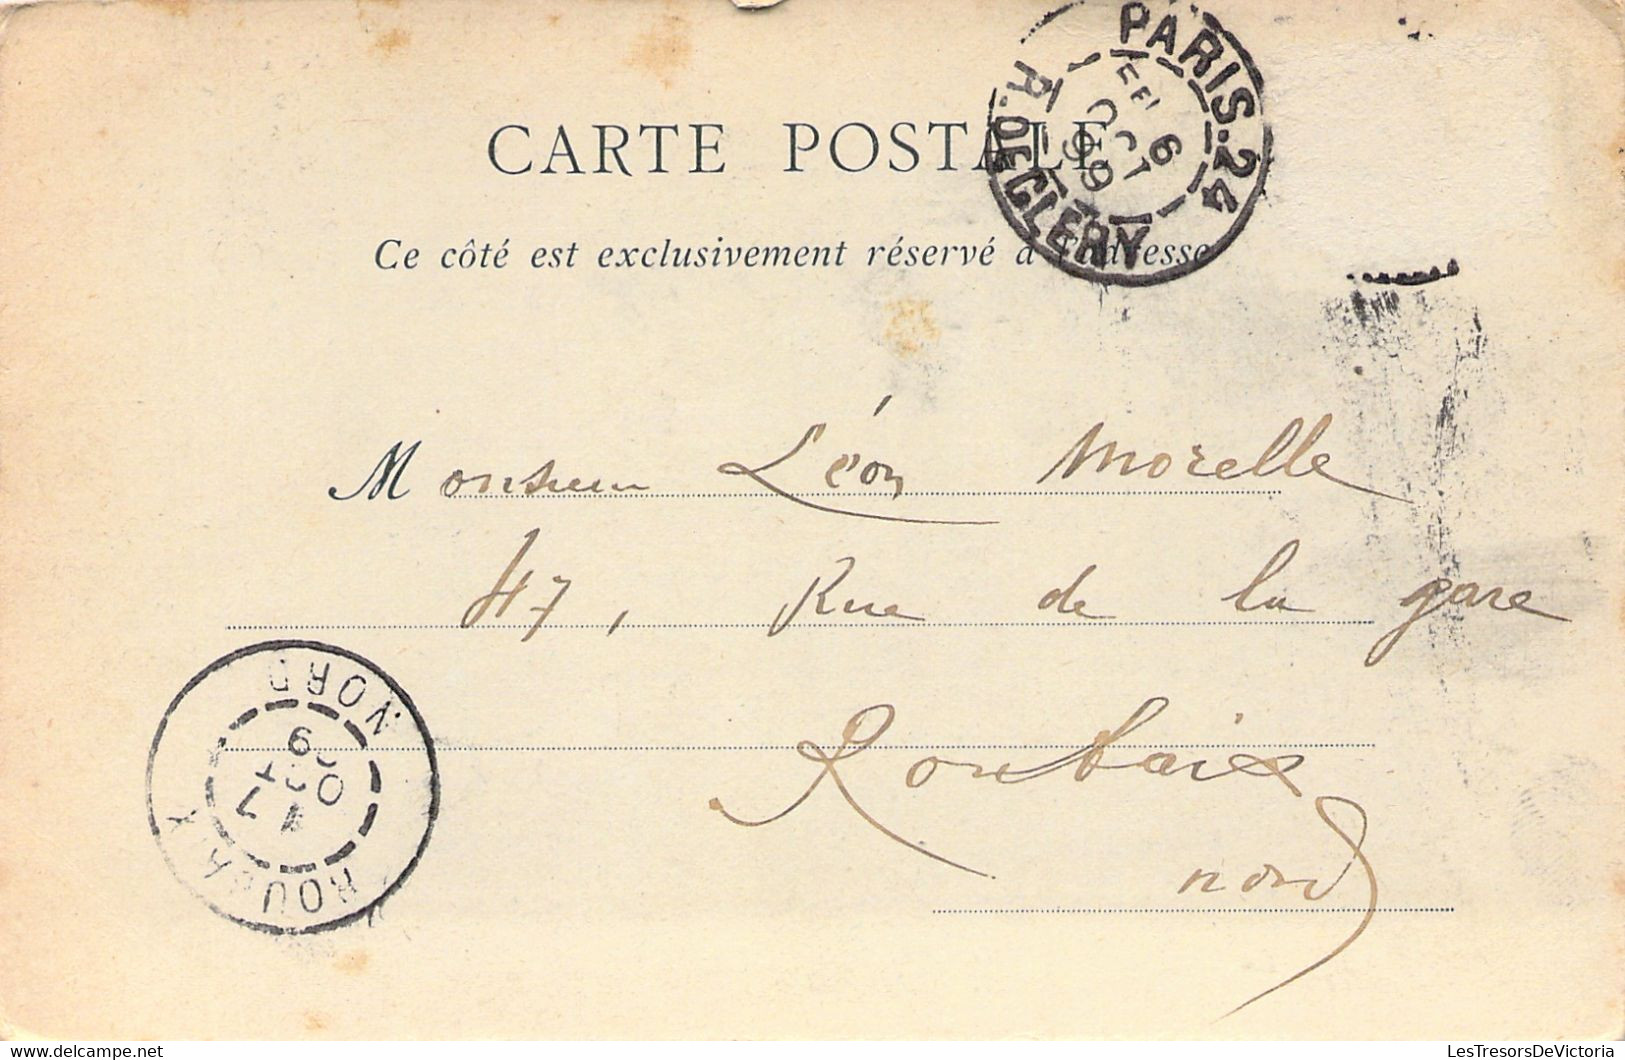 PARIS. 24
R. DE CLERY
6
OCT
99
CARTE POSTALE
Ce côté est exclusivement réservé à l'adresse
Monsieur Léon Morelle
47, Rue de la gare
Roubaix
nord
ROUBAIX
NORD
7
OCT
99
LesTresorsDeVictoria.com